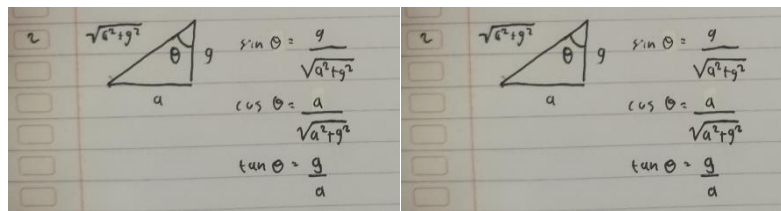 2
√a²+g²
θ
g
a
sin θ = g / √a²+g²
cos θ = a / √a²+g²
tan θ = g / a
2
√a²+g²
θ
g
a
sin θ = g / √a²+g²
cos θ = a / √a²+g²
tan θ = g / a